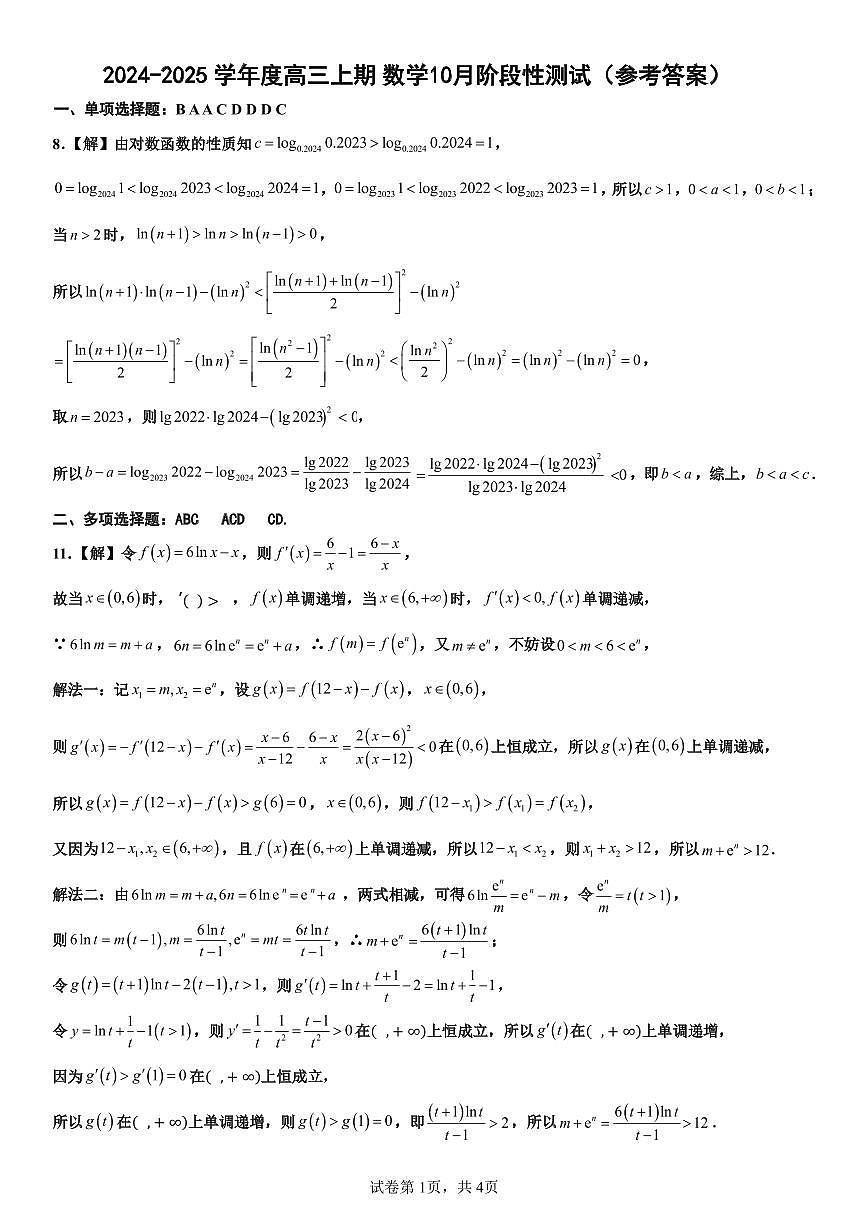 2024-2025 学年度高三上期 数学10月阶段性测试（参考答案）
一、单项选择题：B A A C D D D C
8.【解】由对数函数的性质知 c = log_{0.2024} 0.2023 > log_{0.2024} 0.2024 = 1，
0 = log_{2024} 1 < log_{2024} 2023 < log_{2024} 2024 = 1，0 = log_{2023} 1 < log_{2023} 2022 < log_{2023} 2023 = 1，所以 c > 1，0 < a < 1，0 < b < 1；
当 n > 2 时，ln(n+1) > ln n > ln(n−1) > 0，
所以 ln(n+1)·ln(n−1)−(ln n)² < [(ln(n+1)+ln(n−1))/2]² −(ln n)²
= [ln(n+1)(n−1)/2]² −(ln n)² = [ln(n²−1)/2]² −(ln n)² < (ln n²/2)² −(ln n)² = (ln n)² −(ln n)² = 0，
取 n = 2023，则 lg 2022·lg 2024−(lg 2023)² < 0，
所以 b − a = log_{2023} 2022 − log_{2024} 2023 = lg 2022/lg 2023 − lg 2023/lg 2024 = (lg 2022·lg 2024−(lg 2023)²)/(lg 2023·lg 2024) <0，即 b < a，综上，b < a < c．
二、多项选择题：ABC ACD CD.
11.【解】令 f(x) = 6ln x − x，则 f′(x) = 6/x − 1 = (6−x)/x，
故当 x∈(0,6) 时，′( ) > ，f(x) 单调递增，当 x∈(6,+∞) 时，f′(x) < 0, f(x) 单调递减，
∵ 6ln m = m + a，6n = 6ln eⁿ = eⁿ + a，∴ f(m) = f(eⁿ)，又 m ≠ eⁿ，不妨设 0 < m < 6 < eⁿ，
解法一：记 x₁ = m, x₂ = eⁿ，设 g(x) = f(12−x)− f(x)，x∈(0,6)，
则 g′(x) = −f′(12−x)− f′(x) = (x−6)/(x−12) − (6−x)/x = 2(x−6)²/(x(x−12)) < 0 在 (0,6) 上恒成立，所以 g(x) 在 (0,6) 上单调递减，
所以 g(x) = f(12−x)− f(x) > g(6) = 0，x∈(0,6)，则 f(12−x₁) > f(x₁) = f(x₂)，
又因为 12−x₁, x₂ ∈(6,+∞)，且 f(x) 在 (6,+∞) 上单调递减，所以 12−x₁ < x₂，则 x₁ + x₂ > 12，所以 m + eⁿ > 12．
解法二：由 6ln m = m + a, 6n = 6ln eⁿ = eⁿ + a ，两式相减，可得 6ln eⁿ/m = eⁿ − m，令 eⁿ/m = t(t > 1)，
则 6ln t = m(t−1), m = 6ln t/(t−1), eⁿ = mt = 6t ln t/(t−1)，∴ m + eⁿ = 6(t+1)ln t/(t−1)；
令 g(t) = (t+1)ln t − 2(t−1), t > 1，则 g′(t) = ln t + (t+1)/t − 2 = ln t + 1/t − 1，
令 y = ln t + 1/t − 1(t > 1)，则 y′ = 1/t − 1/t² = (t−1)/t² > 0 在( ,+ ∞)上恒成立，所以 g′(t) 在( ,+ ∞)上单调递增，
因为 g′(t) > g′(1) = 0 在( ,+ ∞)上恒成立，
所以 g(t) 在( ,+ ∞)上单调递增，则 g(t) > g(1) = 0，即 (t+1)ln t/(t−1) > 2，所以 m + eⁿ = 6(t+1)ln t/(t−1) > 12．
试卷第 1页，共 4页